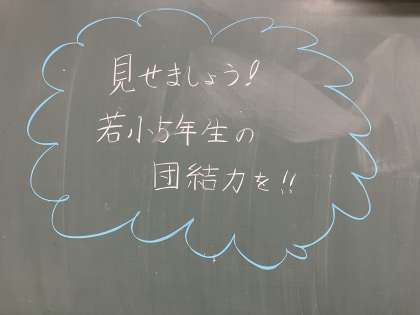 見せましょう!
若小5年生の
団結力を!!